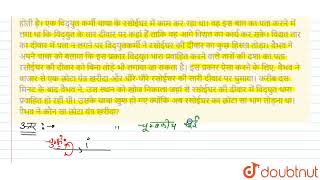 होती है। एक विद्युत कर्मी चाचा के रसोईघर में काम कर रहा था। वह इस बात का पता करने में
लगा था कि विद्युत के तार दीवार पर कहाँ हैं ताकि वह आगे विद्युत का कार्य कर सके। विद्युत तार
का दीवार में पता न लगने पर विद्युतकर्मी ने रसोईघर की दीवार का कुछ हिस्सा तोड़ा। वैभव ने
अपने चाचा को बताया कि इस प्रकार विद्युत धारा प्रवाहित करने वाले तारों की दशा का पता
रसोईघर की दीवार को बिना तोड़े भी लगाया जा सकता है। इस प्रकार ऐसा करने के लिए, वैभव ने
बाजार से एक छोटा यंत्र खरीदा और धीरे-धीरे रसोईघर की सारी दीवार पर घुमाया। करीब दस
मिनट के बाद वैभव ने, उस स्थान को खोज निकाला जहां से रसोईघर की दीवार में विद्युत धारा
प्रवाहित हो रही थी। उसके चाचा खुश हो गए क्योंकि अब रसोईघर का छोटा सा भाग तोड़ना था।
वैभव ने कौन सा छोटा यंत्र खरीदा?
उत्तर :→ " चुम्बकीय सुई
i
doubtnut